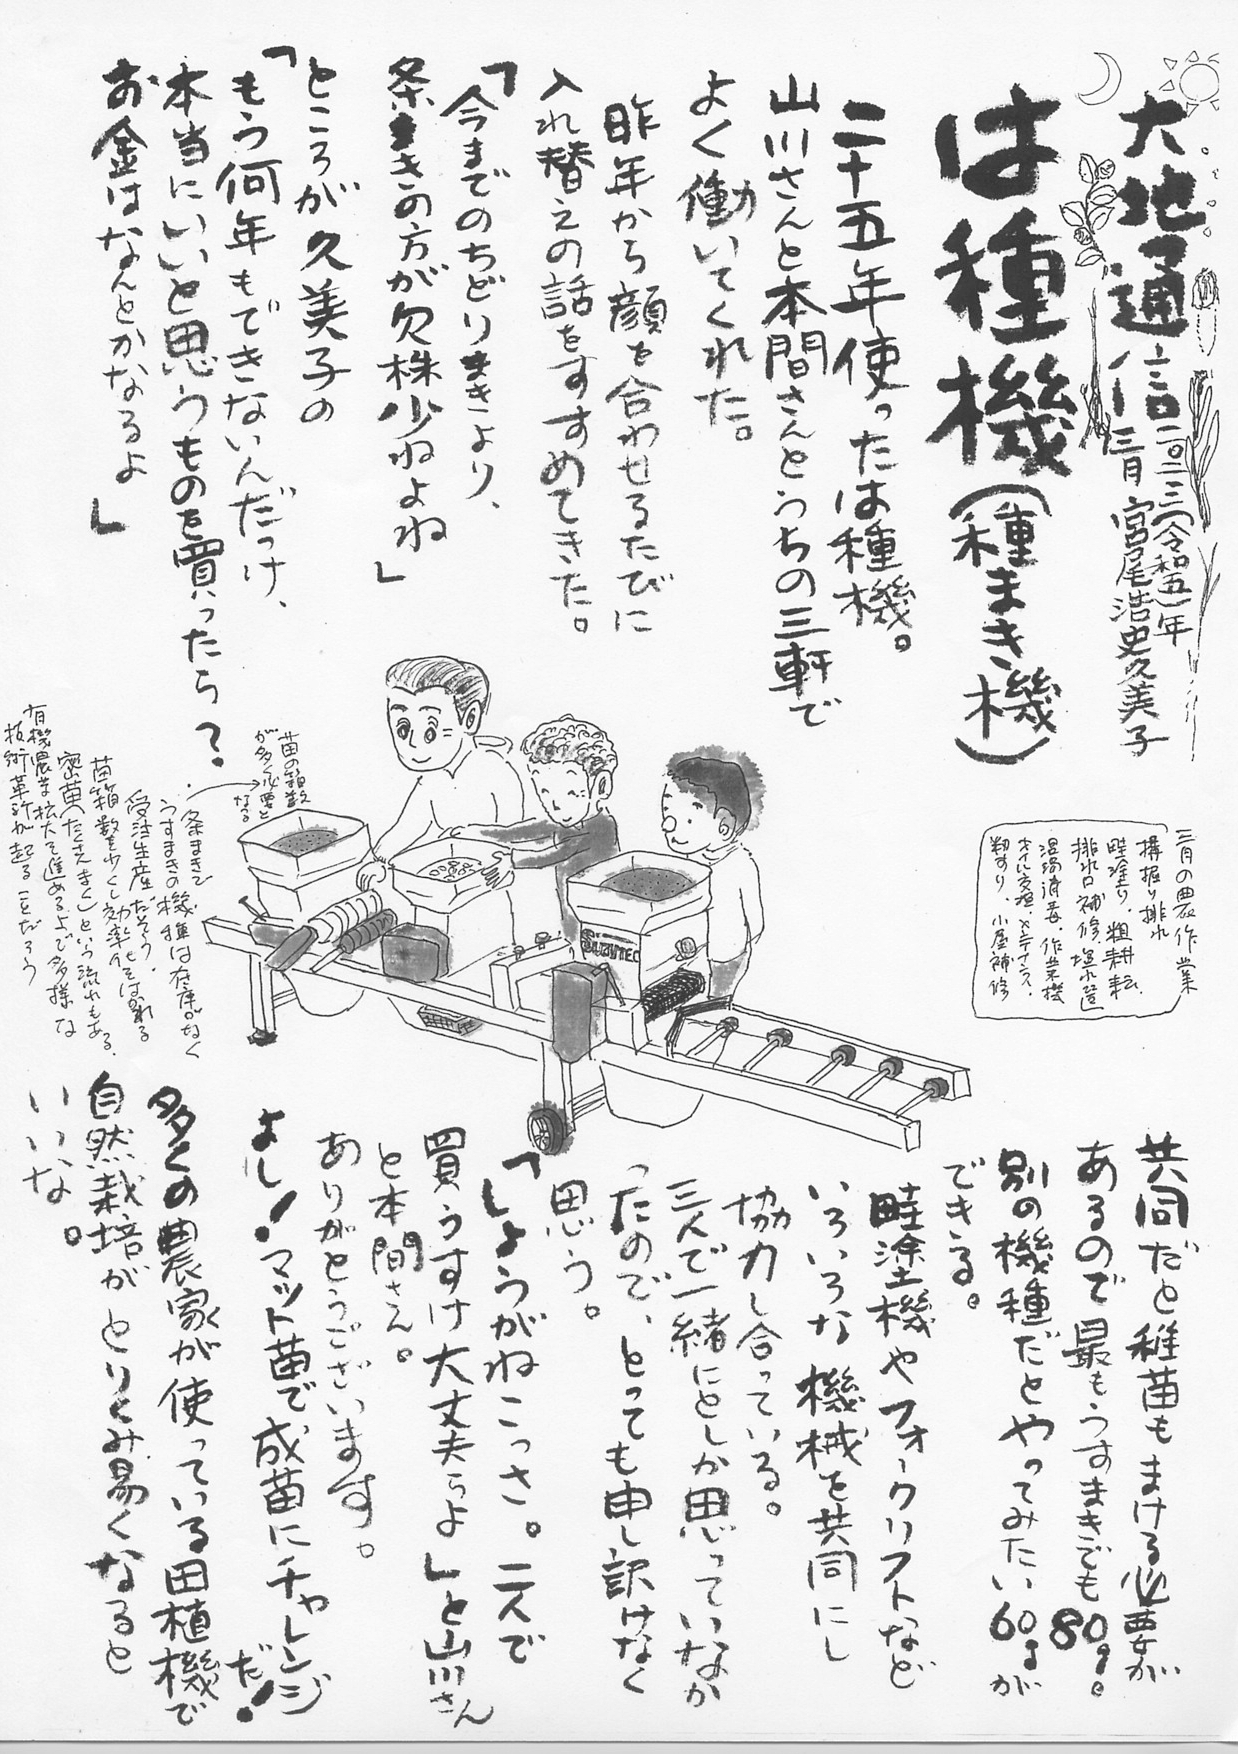 大地通信
二〇二三(令和五)年
三月 宮尾浩史 久美子
は種機(種まき機)
二十五年使ったは種機。
山川さんと本間さんとうちの三軒で
よく働いてくれた。
昨年から顔を合わせるたびに
入れ替えの話をすすめてきた。
「今までのちどりまきより、
条まきの方が欠株少ねよね」
ところが久美子の
「もう何年もできないんだっけ、
本当にいいと思うものを買ったら?
お金はなんとかなるよ」
苗の箱数
が多く必要と
なる
条まきで
うすまきの機種は在庫がなく
受注生産だそう。
苗箱数を少くし効率化をはかる
密苗(たくさんまく)という流れもある。
有機農業拡大を進める上で多様な
技術革新が起ることだろう
三月の農作業
溝掘り排水
畦塗り、粗耕耘、
排水口補修、塩水選
温湯消毒、作業機
オイル交換、メンテナンス、
籾すり、小屋補修
SUZUTEC
共同だと稚苗もまける必要が
あるので最もうすまきでも80g。
別の機種だとやってみたい60gが
できる。
畦塗機やフォークリフトなど
いろいろな機械を共同にし
協力し合っている。
三人で一緒にとしか思っていなか
ったので、とっても申し訳けなく
思う。
「しょうがねこっさ。二人で
買うすけ大丈夫らよ」と山川さん
と本間さん。
ありがとうございます。
よし!マット苗で成苗にチャレンジ
だ!
多くの農家が使っている田植機で
自然栽培がとりくみ易くなると
いいな。